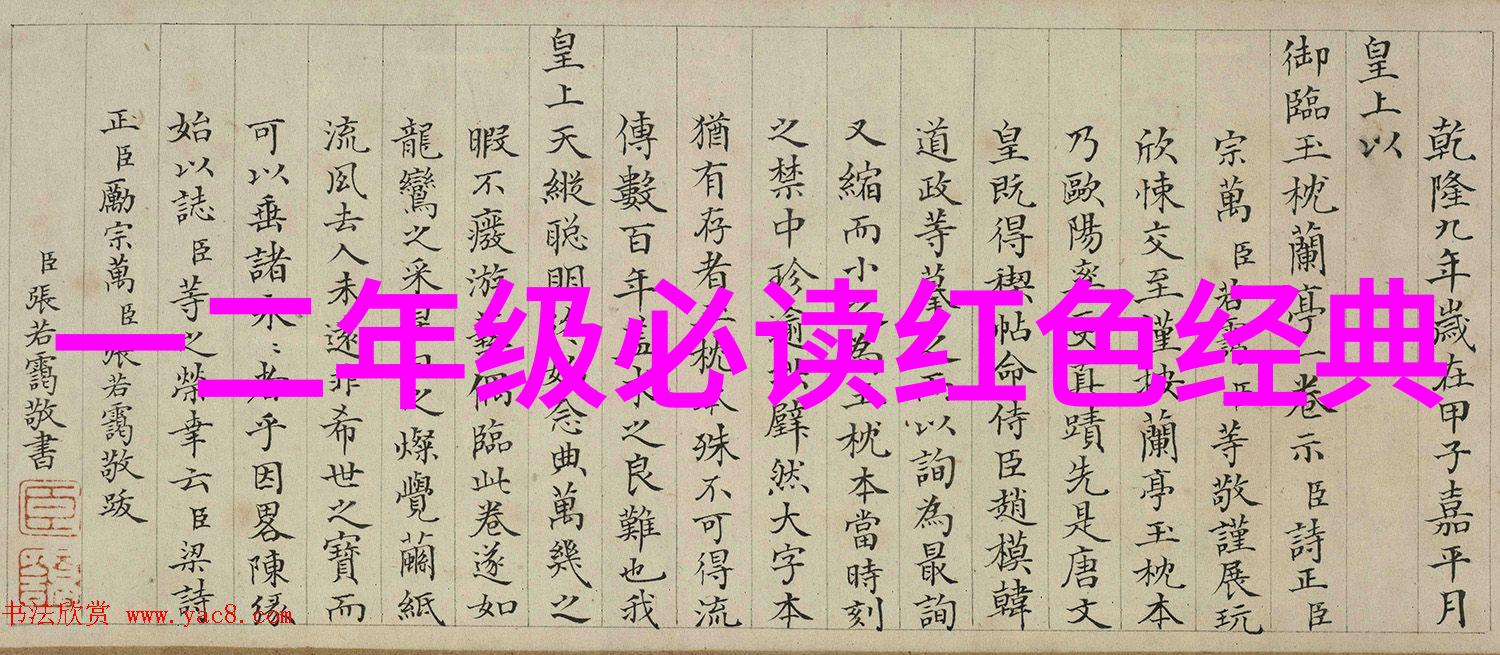 乾隆九年歲在甲子嘉平月
皇上以
御臨玉枕蘭亭一卷示臣詩正臣
宗萬臣若靄臣等敬謹展玩
欣悚交至謹按蘭亭玉枕本
乃歐陽率更真蹟先是唐文
皇既得禊帖命侍臣趙模韓
道政等摹之而以詢為最詢
又縮而小之為玉枕本當時刻
之禁中珍踰拱璧然大字本
猶有存者玉枕本殊不可得流
傳數百年蓋求之良難也我
皇上天縱聰明念典萬幾之
暇不癈游藝偶臨此卷遂如
龍鸞之采之燦覺繭紙
流風去人未遠非希世之寶而
可以垂諸永〻者乎因畧陳緣
始以誌臣等之榮幸云臣梁詩
正臣勵宗萬臣張若靄敬跋
臣張若靄敬書
一二年级必读红色经典
书法欣赏 www.yac8.com